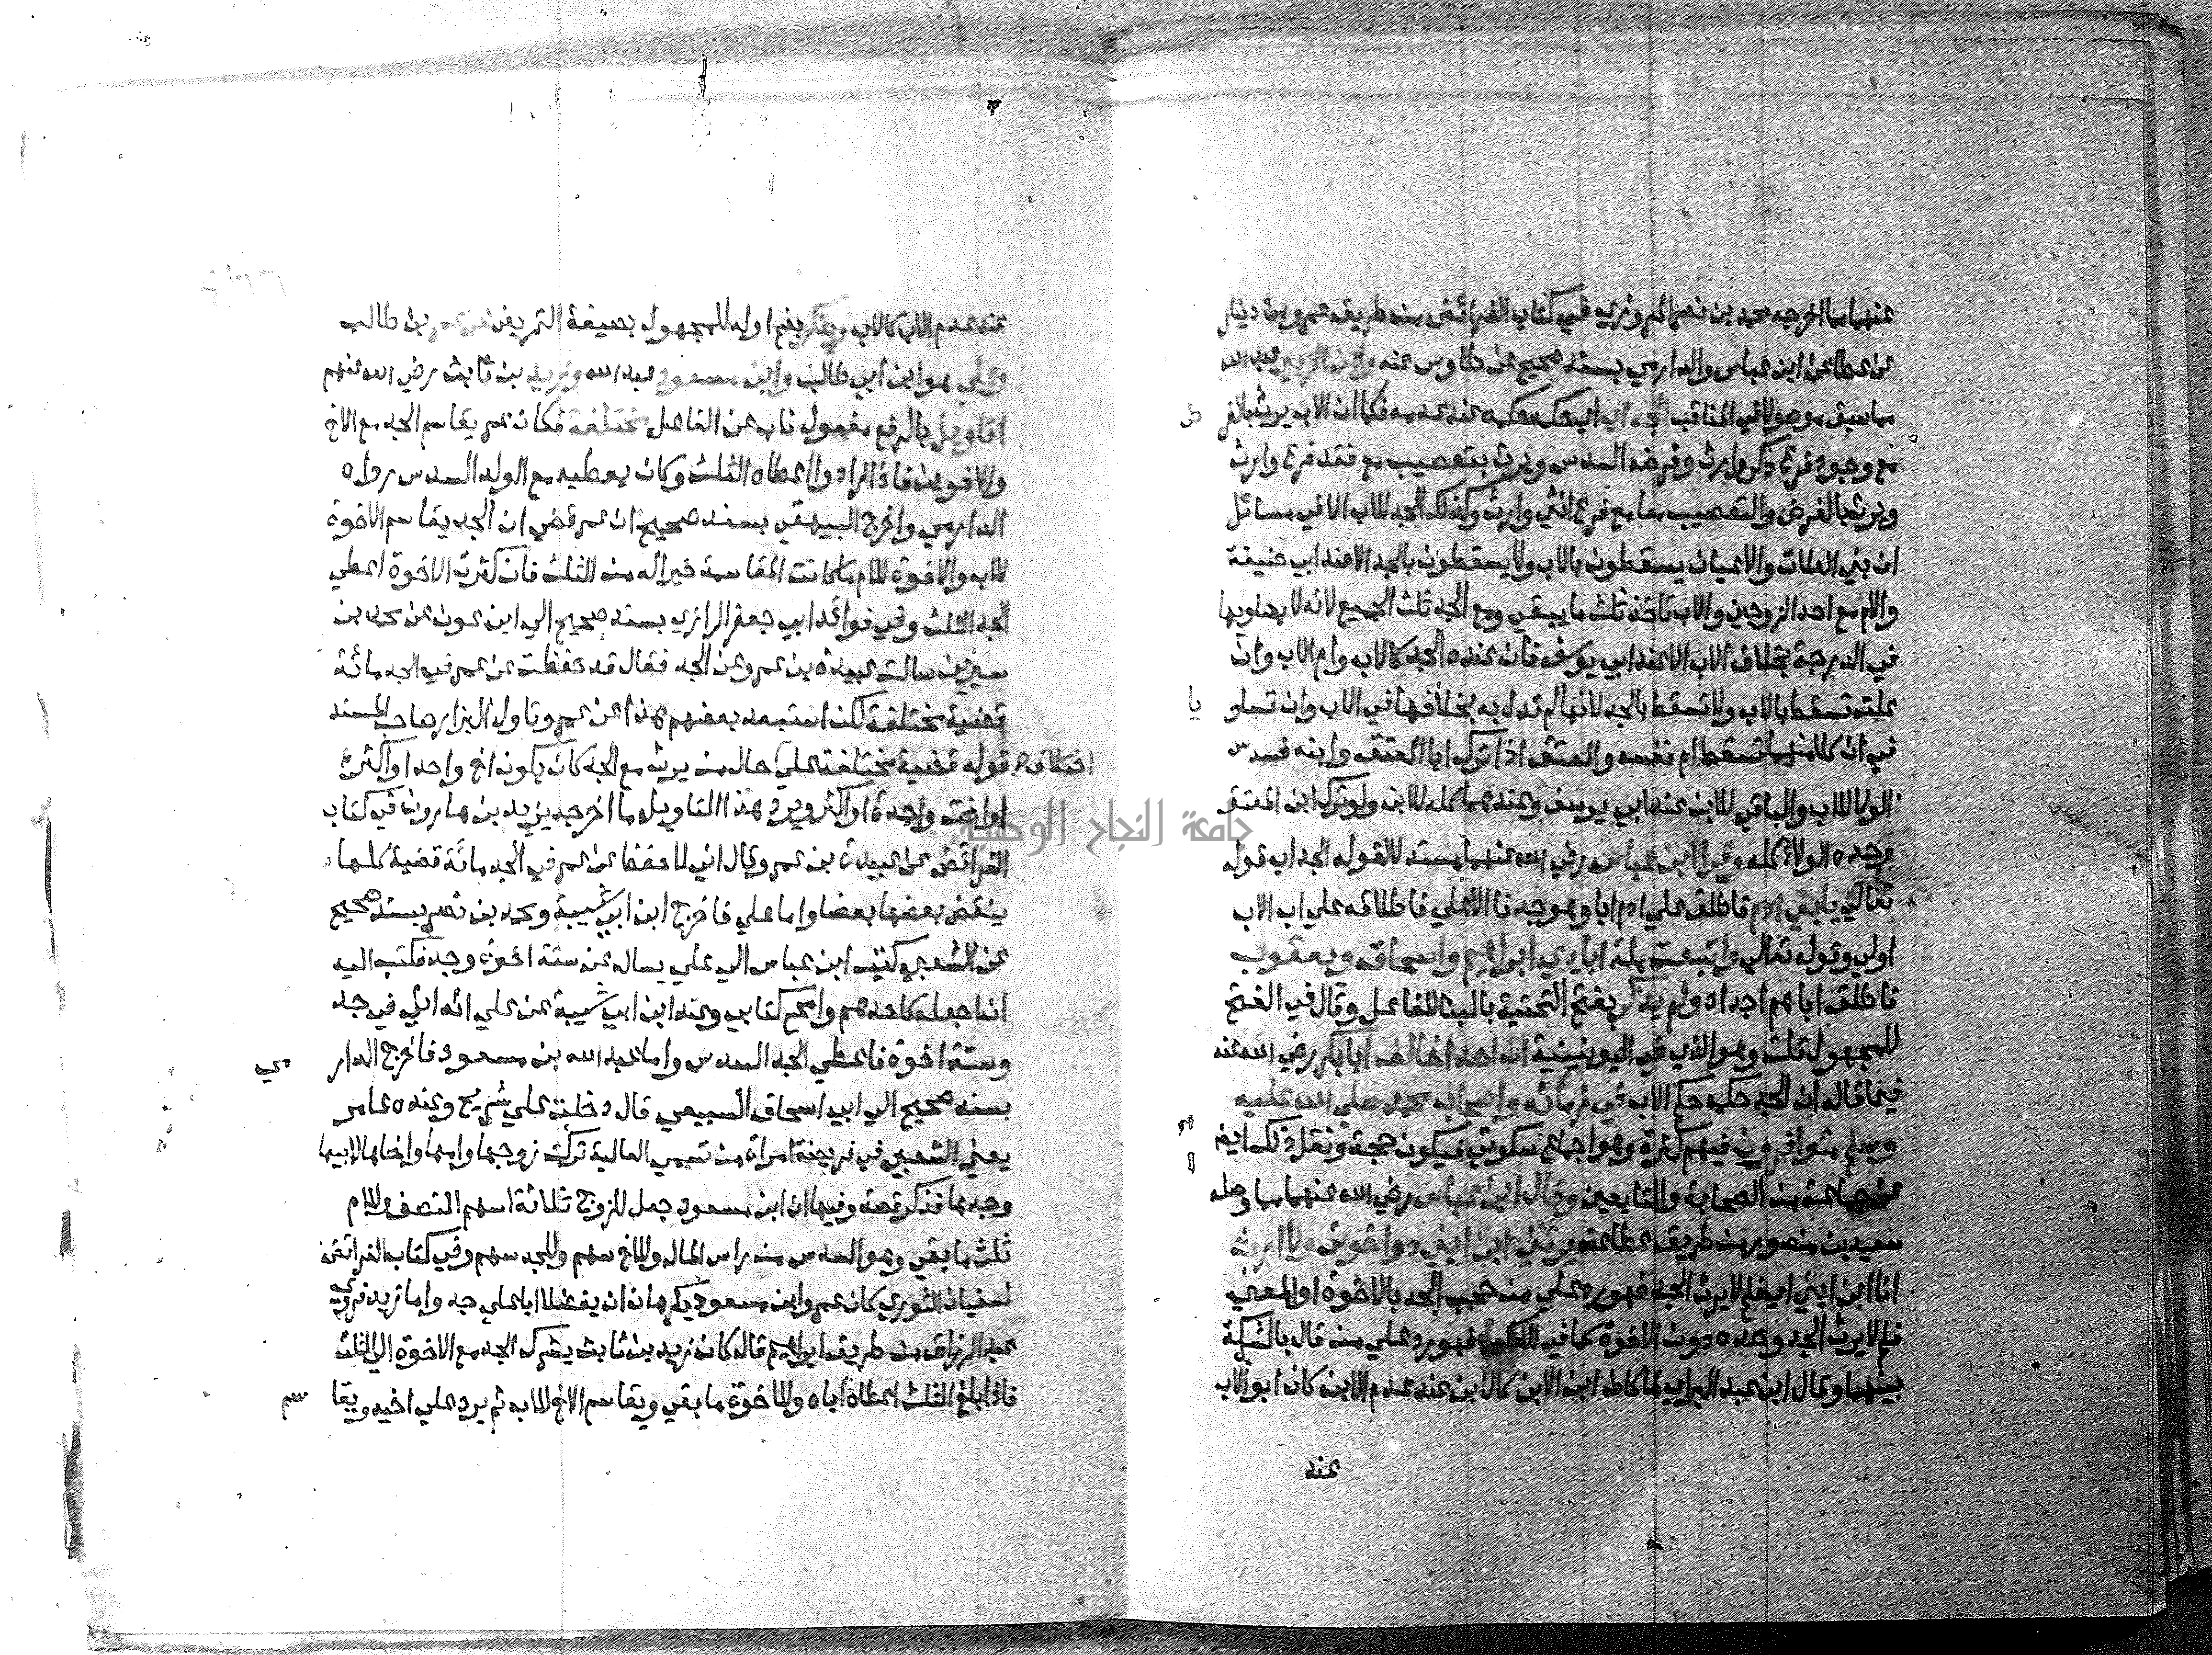 عنهما مما اخرجه محمد بن نصر المروزي في كتاب الفرائض من طريق عمرو بن دينار
عن عطا عن ابن عباس والدارمي بسند صحيح عن طاوس عنه وابن الزبير عبد الله
مما سبق موصولا في المناقب الجد اب اي حكمه حكمه عند عدمه فكما ان الاب يرث بالفر ض
مع وجود فرع ذكر وارث وفرضه السدس ويرث بتعصيب مع فقد فرع وارث
ويرث بالفرض والتعصيب معا مع فرع انثي وارث وكذلك الجد للاب الا في مسائل
ان بني العلات والاعيان يسقطون بالاب ولا يسقطون بالجد الا عند ابي حنيفة
والام مع احد الزوجين والاب تاخذ ثلث ما يبقي ومع الجد ثلث الجميع لانه لا يساويها
في الدرجة بخلاف الاب الا عند ابي يوسف فان عنده الجد كالاب وام الاب وان
علت تسقط بالاب ولا تسقط بالجد لانها لم تدل به بخلافها في الاب وان تساو يا
في ان كلا منهما تسقط ام نفسه والمعتق اذا ترك ابا المعتق وابنه فسدس
الولا للاب والباقي للابن عند ابي يوسف وعندهما كله للابن ولو ترك ابن المعتق
وجده الولاء كله وقرا ابن عباس رضي الله عنهما مستدلا لقوله الجد اب قوله
تعالي يا بني ادم فاطلق علي ادم ابا وهو جدنا الاعلي فاطلاقه علي اب الاب
اولي وقوله تعالي واتبعت ملة اباءي ابراهيم واسحاق ويعقوب
فاطلق اباهم اجداد ولم يذكر بفتح التحتية بالبنا للفاعل وقال في الفتح
للمجهول قلت وهو الذي في اليونينية ان احدا خالف ابا بكر رضي الله عنه
فيما قاله ان الجد حكمه حكم الاب في زمانه واصحاب محمد صلي الله عليه
وسلم متوافرون فيهم كثرة وهو اجماع سكوتي فيكون حجة ونقل ذلك ايضا
عن جماعة من الصحابة والتابعين وقال ابن عباس رضي الله عنهما مما وصله
سعيد بن منصور من طريق عطا عنه يرثني ابن ابني دون اخوتي ولا ارث
انا ابن ابني اي فلم لا يرث الجد فهو رد علي من حجب الجد بالاخوة او المعني
فلم لا يرث الجد وحده دون الاخوة كما في العكس فهو رد علي من قال بالشركة
بينهما وقال ابن عبد البر اي لما كان ابن الابن كالابن عند عدم الابن كان ابو الاب
عند
عند عدم الاب كالاب ويذكر بضم اوله للمجهول بصيغة التمريض عن عمر بن طالب
وعلي هو ابن ابي طالب وابن مسعود عبد الله وزيد بن ثابت رضي الله عنهم
اقاويل بالرفع مفعول ناب عن الفاعل مختلفة فكان عمر يقاسم الجد مع الاخ
والاخوين فاذا زادوا اعطاه الثلث وكان يعطيه مع الولد السدس رواه
الدارمي واخرج البيهقي بسند صحيح ان عمر قضي ان الجد يقاسم الاخوة
للاب والاخوة للام ما كانت المقاسمة خيرا له من الثلث فان كثرت الاخوة اعطي
الجد الثلث وفي فوائد ابي جعفر الرازي بسند صحيح الي ابن عون عن محمد بن
سيرين سالت عبيدة بن عمرو عن الجد فقال قد حفظت عن عمر في الجد مائة
قضية مختلفة لكن استبعد بعضهم هذا عن عمر وتاول البزار صاحب المسند
قوله قضية مختلفة علي اختلاف حال من يرث مع الجد كان يكون اخ واحد او اكثر
او اخت واحدة او اكثر ويرد هذا التاويل ما اخرجه يزيد بن هارون في كتاب
الفرائض عن عبيدة بن عمرو قال اني لاحفظ عن عمر في الجد مائة قضية كلها
ينقض بعضها بعضا واما علي فاخرج ابن ابي شيبة ومحمد بن نصر بسند صحيح
عن الشعبي كتب ابن عباس الي علي يساله عن ستة اخوة وجد فكتب اليه
ان اجعله كاحدهم وامح كتابي وعند ابن ابي شيبة عن علي انه افتي في جد
وستة اخوة فاعطي الجد السدس واما عبد الله بن مسعود فاخرج الدار مي
بسند صحيح الي ابي اسحاق السبيعي قال دخلت علي شريح وعنده عامر
يعني الشعبي في فريضة امراة من تسمي العالية تركت زوجها وامها واخاها لابيها
وجدها فذكر قصة وفيها ان ابن مسعود جعل للزوج ثلاثة اسهم النصف وللام
ثلث ما بقي وهو السدس من راس المال وللاخ سهم وللجد سهم وفي كتاب الفرائض
لسفيان الثوري كان عمر وابن مسعود يكرهان ان يفضلا اما علي جد واما زيد فروي
عبد الرزاق من طريق ابراهيم قال كان زيد بن ثابت يشرك الجد مع الاخوة الي الثلث
فاذا بلغ الثلث اعطاه اياه وللاخوة ما بقي ويقاسم الاخ للاب ثم يرد علي اخيه ويقا سم
جامعة النجاح الوطنية